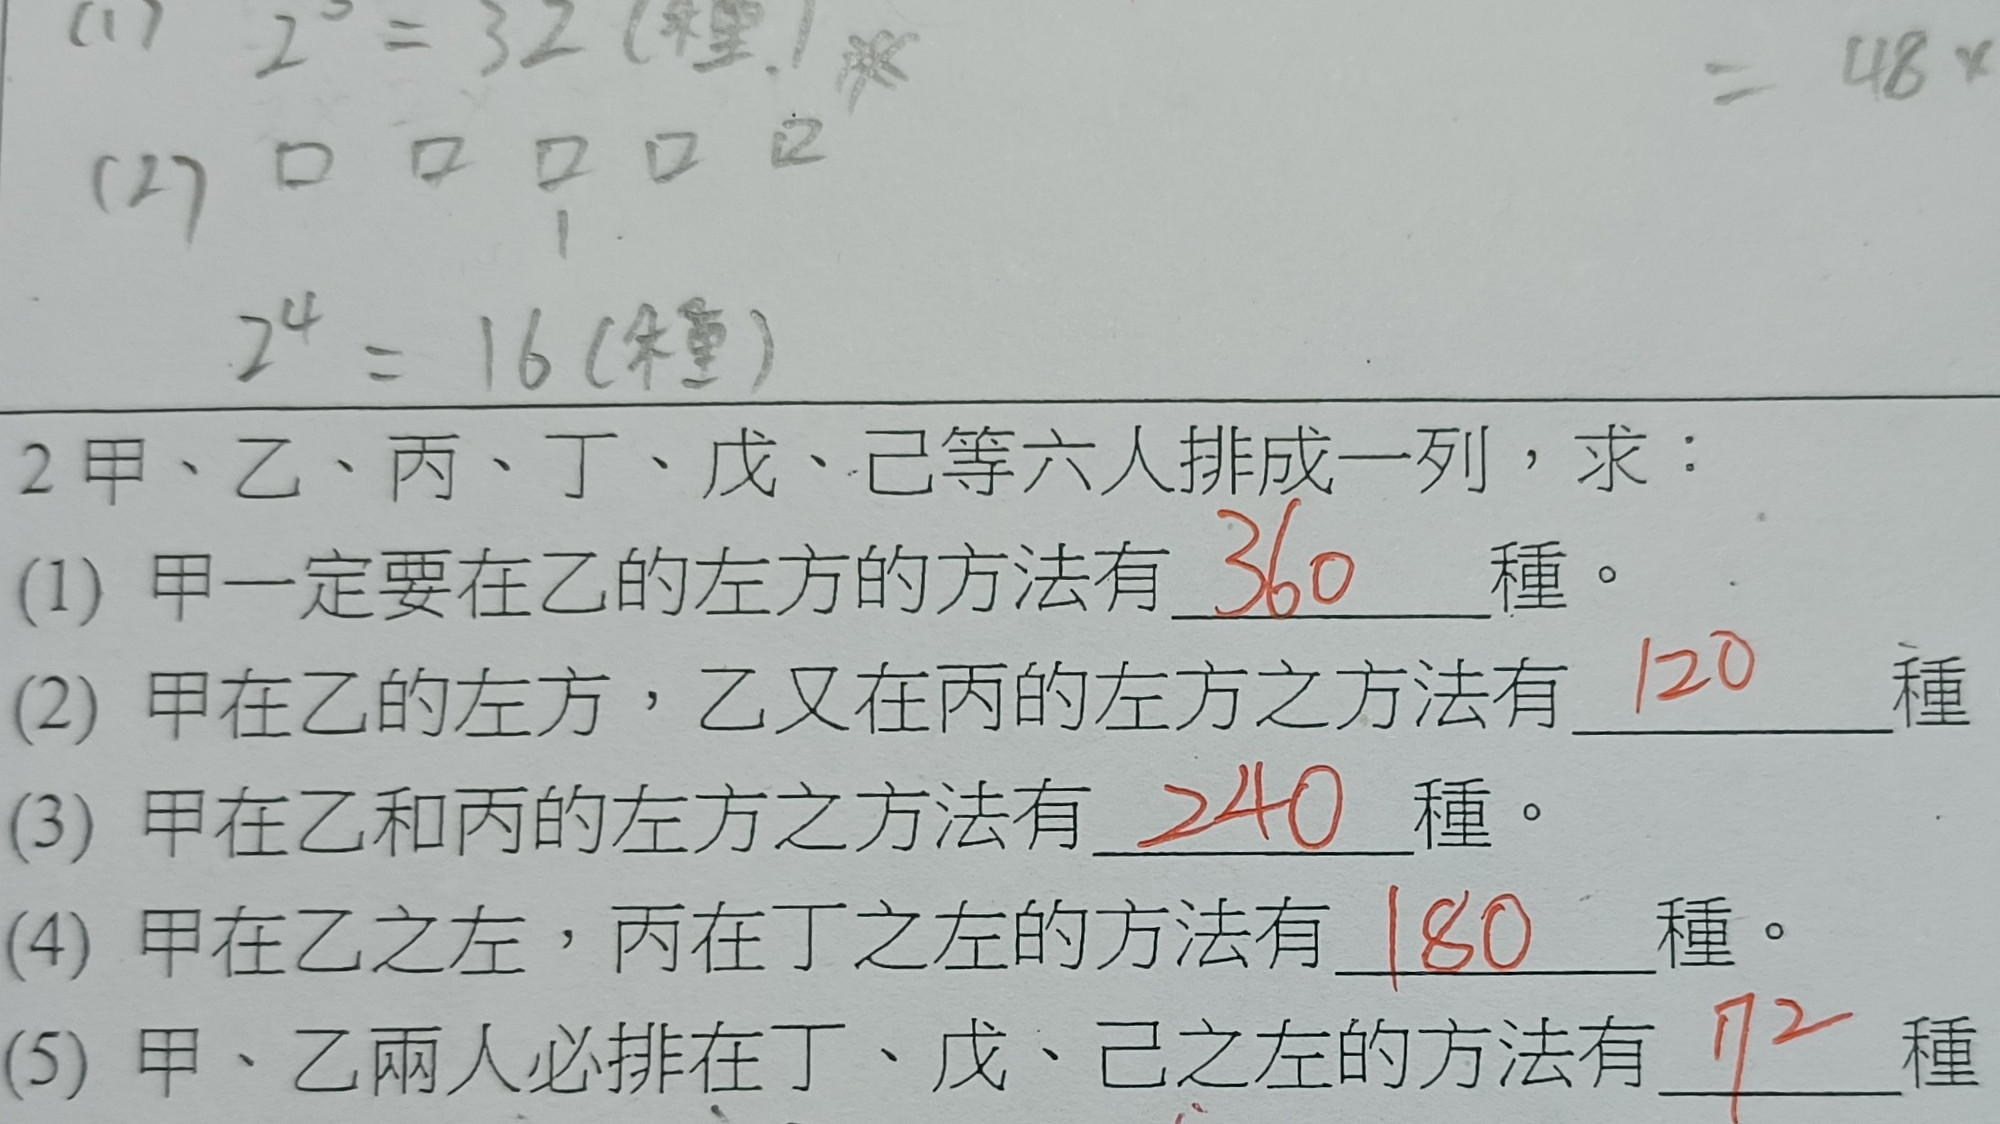 (1) 2⁵ = 32 (種) ※
= 48
(2) 口 口 口 口 口
1
2⁴ = 16 (種)
2 甲、乙、丙、丁、戊、己等六人排成一列，求：
(1) 甲一定要在乙的左方的方法有 360 種。
(2) 甲在乙的左方，乙又在丙的左方之方法有 120 種
(3) 甲在乙和丙的左方之方法有 240 種。
(4) 甲在乙之左，丙在丁之左的方法有 180 種。
(5) 甲、乙兩人必排在丁、戊、己之左的方法有 72 種